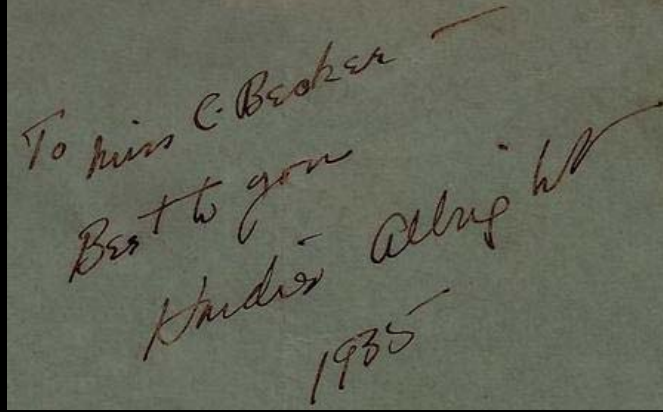 To Miss C. Becker —
Best to you
Hardie Albright
1935